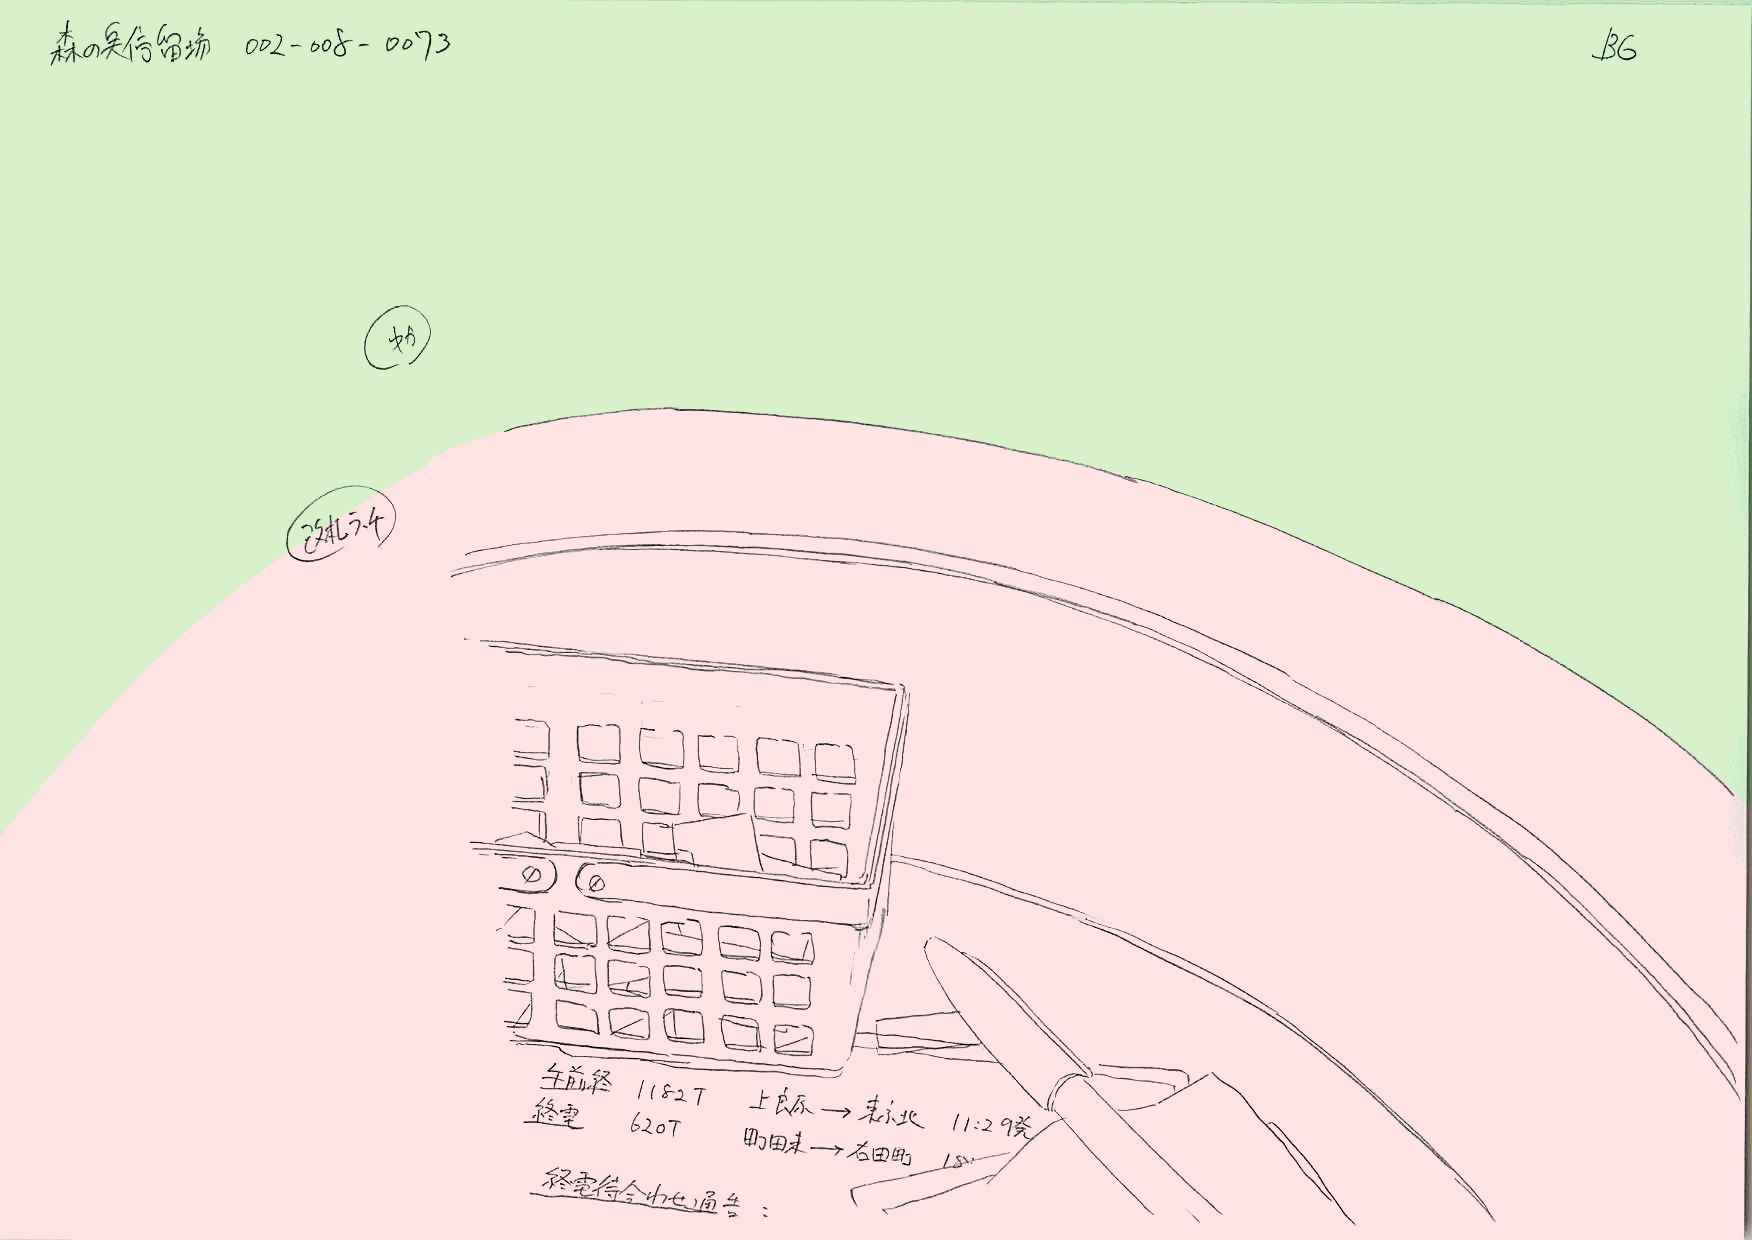 森の奥停留場 002-008-0073
BG
改札ラッチ
午前終 1182T 上良原→東京北 11:29発
終電 620T 町田来→右田町 18
終電待合わせ通告: